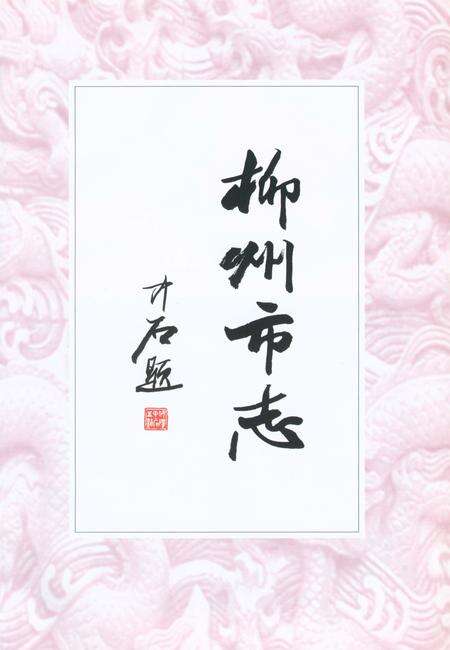 柳州市志
介石题